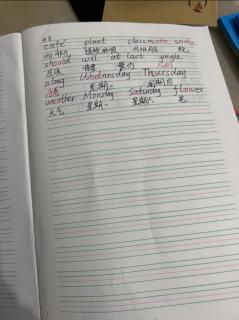 cafe plant classmate snake
植物 种植
should will at last people
应该 最后
along Wednesday Thursday
沿着 星期三 星期四
weather Monday Saturday flower
天气 星期一 星期六 花